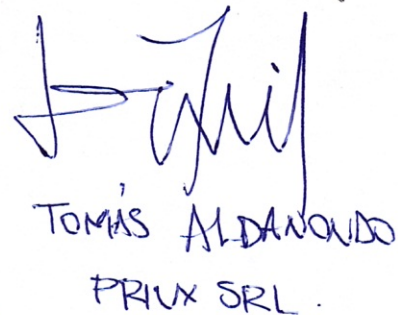 TOMÁS ALDANONDO
PRIUX SRL.